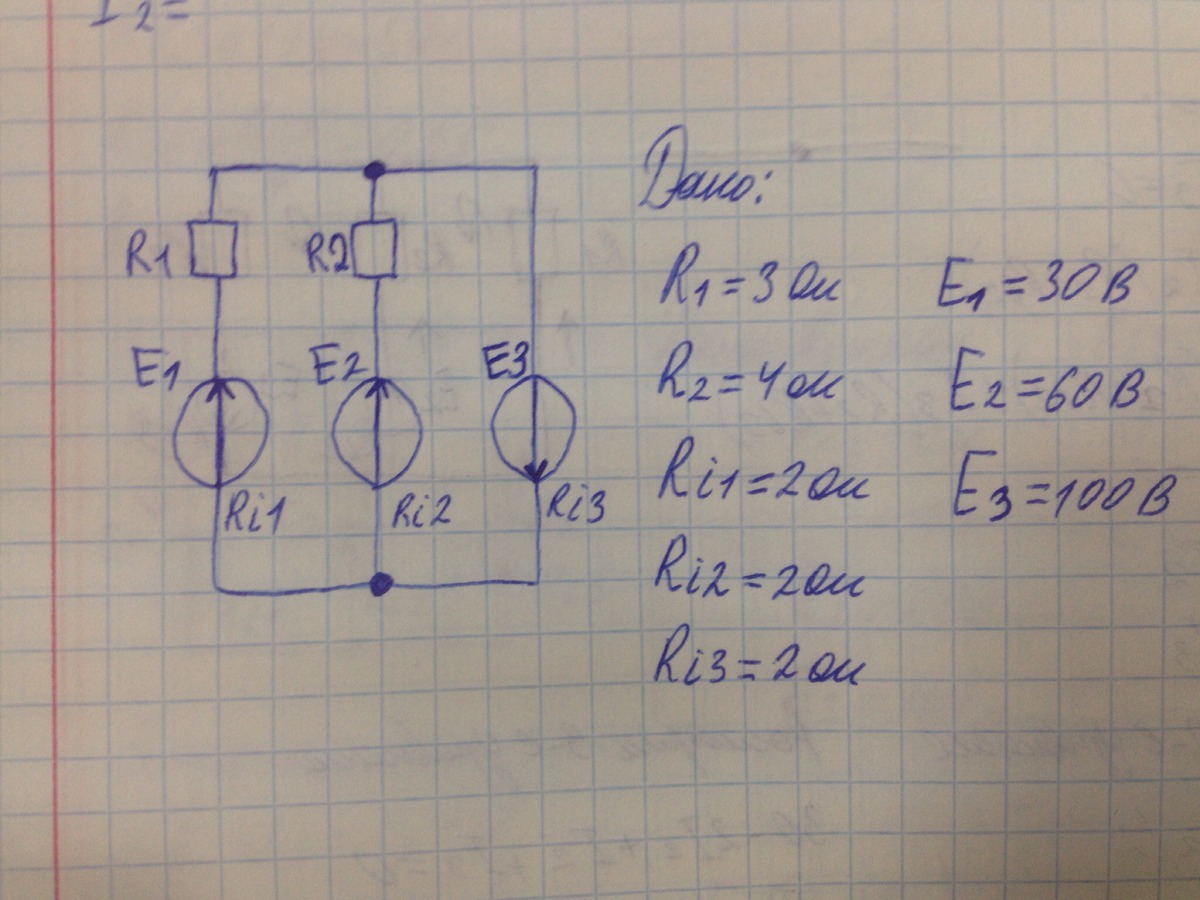 I2=
Дано:
R1 R2
R1=3 Ом E1=30 В
E1 E2 E3
R2=4 Ом E2=60 В
Ri1 Ri2 Ri3
Ri1=2 Ом E3=100 В
Ri2=2 Ом
Ri3=2 Ом